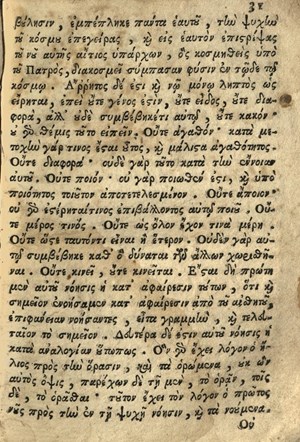 31
βέλησιν, ἐμπέπληκε πάντα ἑαυτοῦ, τὴν ψυχὴν
τοῦ κόσμου ἐπεγείρας, καὶ εἰς ἑαυτὸν ἐπιστρέψας
τοῦ νοῦ αὐτῆς αἴτιος ὑπάρχων, ὃς κοσμηθεὶς ὑπὸ
τοῦ Πατρὸς, διακοσμεῖ σύμπασαν φύσιν ἐν τῷδε τῷ
κόσμῳ. Ἄῤῥητος δέ ἐστι καὶ νῷ μόνῳ ληπτὸς ὡς
εἴρηται, ἐπεὶ οὔτε γένος ἐστὶν, οὔτε εἶδος, οὔτε δια-
φορὰ, ἀλλ' οὐδὲ συμβέβηκέ τι αὐτῷ, οὔτε κακόν·
οὐ γὰρ θέμις τοῦτο εἰπεῖν. Οὔτε ἀγαθόν· κατὰ με-
τοχὴν γάρ τινος ἔσται οὗτος, καὶ μάλιστα ἀγαθότητος.
Οὔτε διαφορά· οὐδὲ γὰρ τοῦτο κατὰ τὴν ἔννοιαν
αὐτοῦ. Οὔτε ποιόν· οὐ γὰρ ποιωθέν ἐστι, καὶ ὑπὸ
ποιότητος τοιοῦτον ἀποτετελεσμένον. Οὔτε ἄποιον·
οὐ γὰρ ἐστέρηται τινος ἐπιβάλλοντος αὐτῷ ποιοῦ. Οὔ-
τε μέρος τινός. Οὔτε ὡς ὅλον ἔχον τινὰ μέρη.
Οὔτε ὥστε ταυτόν τινι εἶναι ἢ ἕτερον. Οὐδὲν γὰρ αὐ-
τῷ συμβέβηκε καθ' ὃ δύναται τῶν ἄλλων χωρισθῆ-
ναι. Οὔτε κινεῖ, οὔτε κινεῖται. Ἔσται δὴ πρώτη
μὲν αὐτοῦ νόησις ἡ κατ' ἀφαίρεσιν τούτων, ὅτι καὶ
σημεῖον ἐνοήσαμεν κατ' ἀφαίρεσιν ἀπὸ τοῦ αἰσθητοῦ,
ἐπιφάνειαν νοήσαντες, εἶτα γραμμὴν, καὶ τελευ-
ταῖον τὸ σημεῖον. Δευτέρα δέ ἐστιν αὐτοῦ νόησις ἡ
κατὰ ἀναλογίαν οὕτω πως. Ὃν γὰρ ἔχει λόγον ὁ ἥ-
λιος πρὸς τὴν ὅρασιν, καὶ τὰ ὁρώμενα, οὐκ ὢν
αὐτὸς ὄψις, παρέχων δὲ τῇ μὲν, τὸ ὁρᾶν, τοῖς
δὲ, τὸ ὁρᾶσθαι· τοῦτον ἔχει τὸν λόγον ὁ πρῶτος
νοῦς πρὸς τὴν ἐν τῇ ψυχῇ νόησιν, καὶ τὰ νοούμενα.
Οὐ